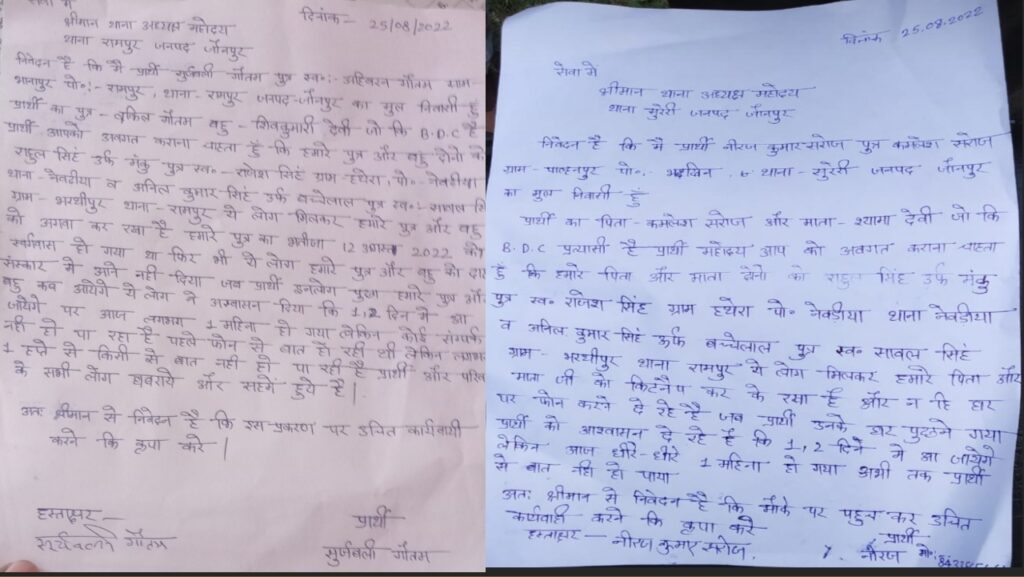 सेवा में
श्रीमान थाना अध्यक्ष महोदय
थाना रामपुर जनपद जौनपुर
दिनांक- 25/08/2022
निवेदन है कि मै प्रार्थी सुर्जबली गौतम पुत्र स्व०:- अहिबरन गौतम ग्राम-
भानापुर पो०:- रामपुर, थाना- रामपुर जनपद-जौनपुर का मुल निवासी हुँ
प्रार्थी का पुत्र - बकिल गौतम बहु - शिवकुमारी देवी जो कि B.D.C है
प्रार्थी आपको अवगत कराना चाहता हुँ कि हमारे पुत्र और बहु दोनो को
राहुल सिंह उर्फ मंकु पुत्र स्व०- राजेश सिंह ग्राम हथेरा, पो०- नेवढीया
थाना- नेवढीया व अनिल कुमार सिंह उर्फ बच्चेलाल पुत्र स्व०- सावल सि
ग्राम- भरथीपुर थाना- रामपुर ये लोग मिलकर हमारे पुत्र और बहु
को अगवा कर रखा है हमारे पुत्र का भतीजा 12 अगस्त 2022 को
स्वर्गवास हो गया था फिर भी ये लोग हमारे पुत्र और बहु को दाह
संस्कार मे आने नही दिया जब प्रार्थी इनलोग पुछा हमारे पुत्र और
बहु कब आयेगे ये लोग ने अश्वासन दिया कि 1,2 दिन मे आ
जायेगे पर आज लगभग 1 महिना हो गया लेकिन कोई संम्पर्क
नही हो पा रहा है पहले फोन से बात हो रही थी लेकिन लगभग
1 हप्ते से किसी से बात नही हो पा रही है प्रार्थी और परिव
के सभी लोग घबराये और सहमे हुये है|
अतः श्रीमान से निवेदन है कि इस प्रकरण पर उचित कार्यवाही
करने कि कृपा करे |
हस्ताक्षर -
सूर्यबली गौतम
प्रार्थी
सुर्जबली गौतम
दिनांक 25.08.2022
सेवा मे
श्रीमान थाना अध्यक्ष महोदय
थाना सुरेरी जनपद जौनपुर
निवेदन है कि मै प्रार्थी नीरज कुमार सरोज पुत्र कमलेश सरोज
ग्राम- पाल्हनपुर पो०:- थाना- सुरेरी जनपद जौनपुर
का मुल निवासी हुँ
प्रार्थी का पिता- कमलेश सरोज और माता- श्यामा देवी जो कि
B.D.C प्रत्यासी है प्रार्थी महोदय आप को अवगत कराना चाहता
हुँ कि हमारे पिता और माता दोनो को राहुल सिंह उर्फ मंकु
पुत्र स्व० राजेश सिंह ग्राम हथेरा पो० नेवढीया थाना नेवढीया
व अनिल कुमार सिंह उर्फ बच्चेलाल पुत्र स्व० सावल सिंह
ग्राम- भरथीपुर थाना रामपुर ये लोग मिलकर हमारे पिता और
माता जी को किटनैप कर के रखा है और न हि
पर फोन करने दे रहे है जब प्रार्थी उनके घर पुछने गया
प्रार्थी को आश्वासन दे रहे है कि 1,2 दिन मे आ जायेगे
लेकिन आज धीरे-धीरे 1 महिना हो गया अभी तक प्रार्थी
से बात नही हो पाया
अतः श्रीमान से निवेदन है कि मौके पर पहुच कर उचित
कार्यवाही करने कि कृपा करे
हस्ताक्षर - नीरज कुमार सरोज.
प्रार्थी
नीरज मो०: